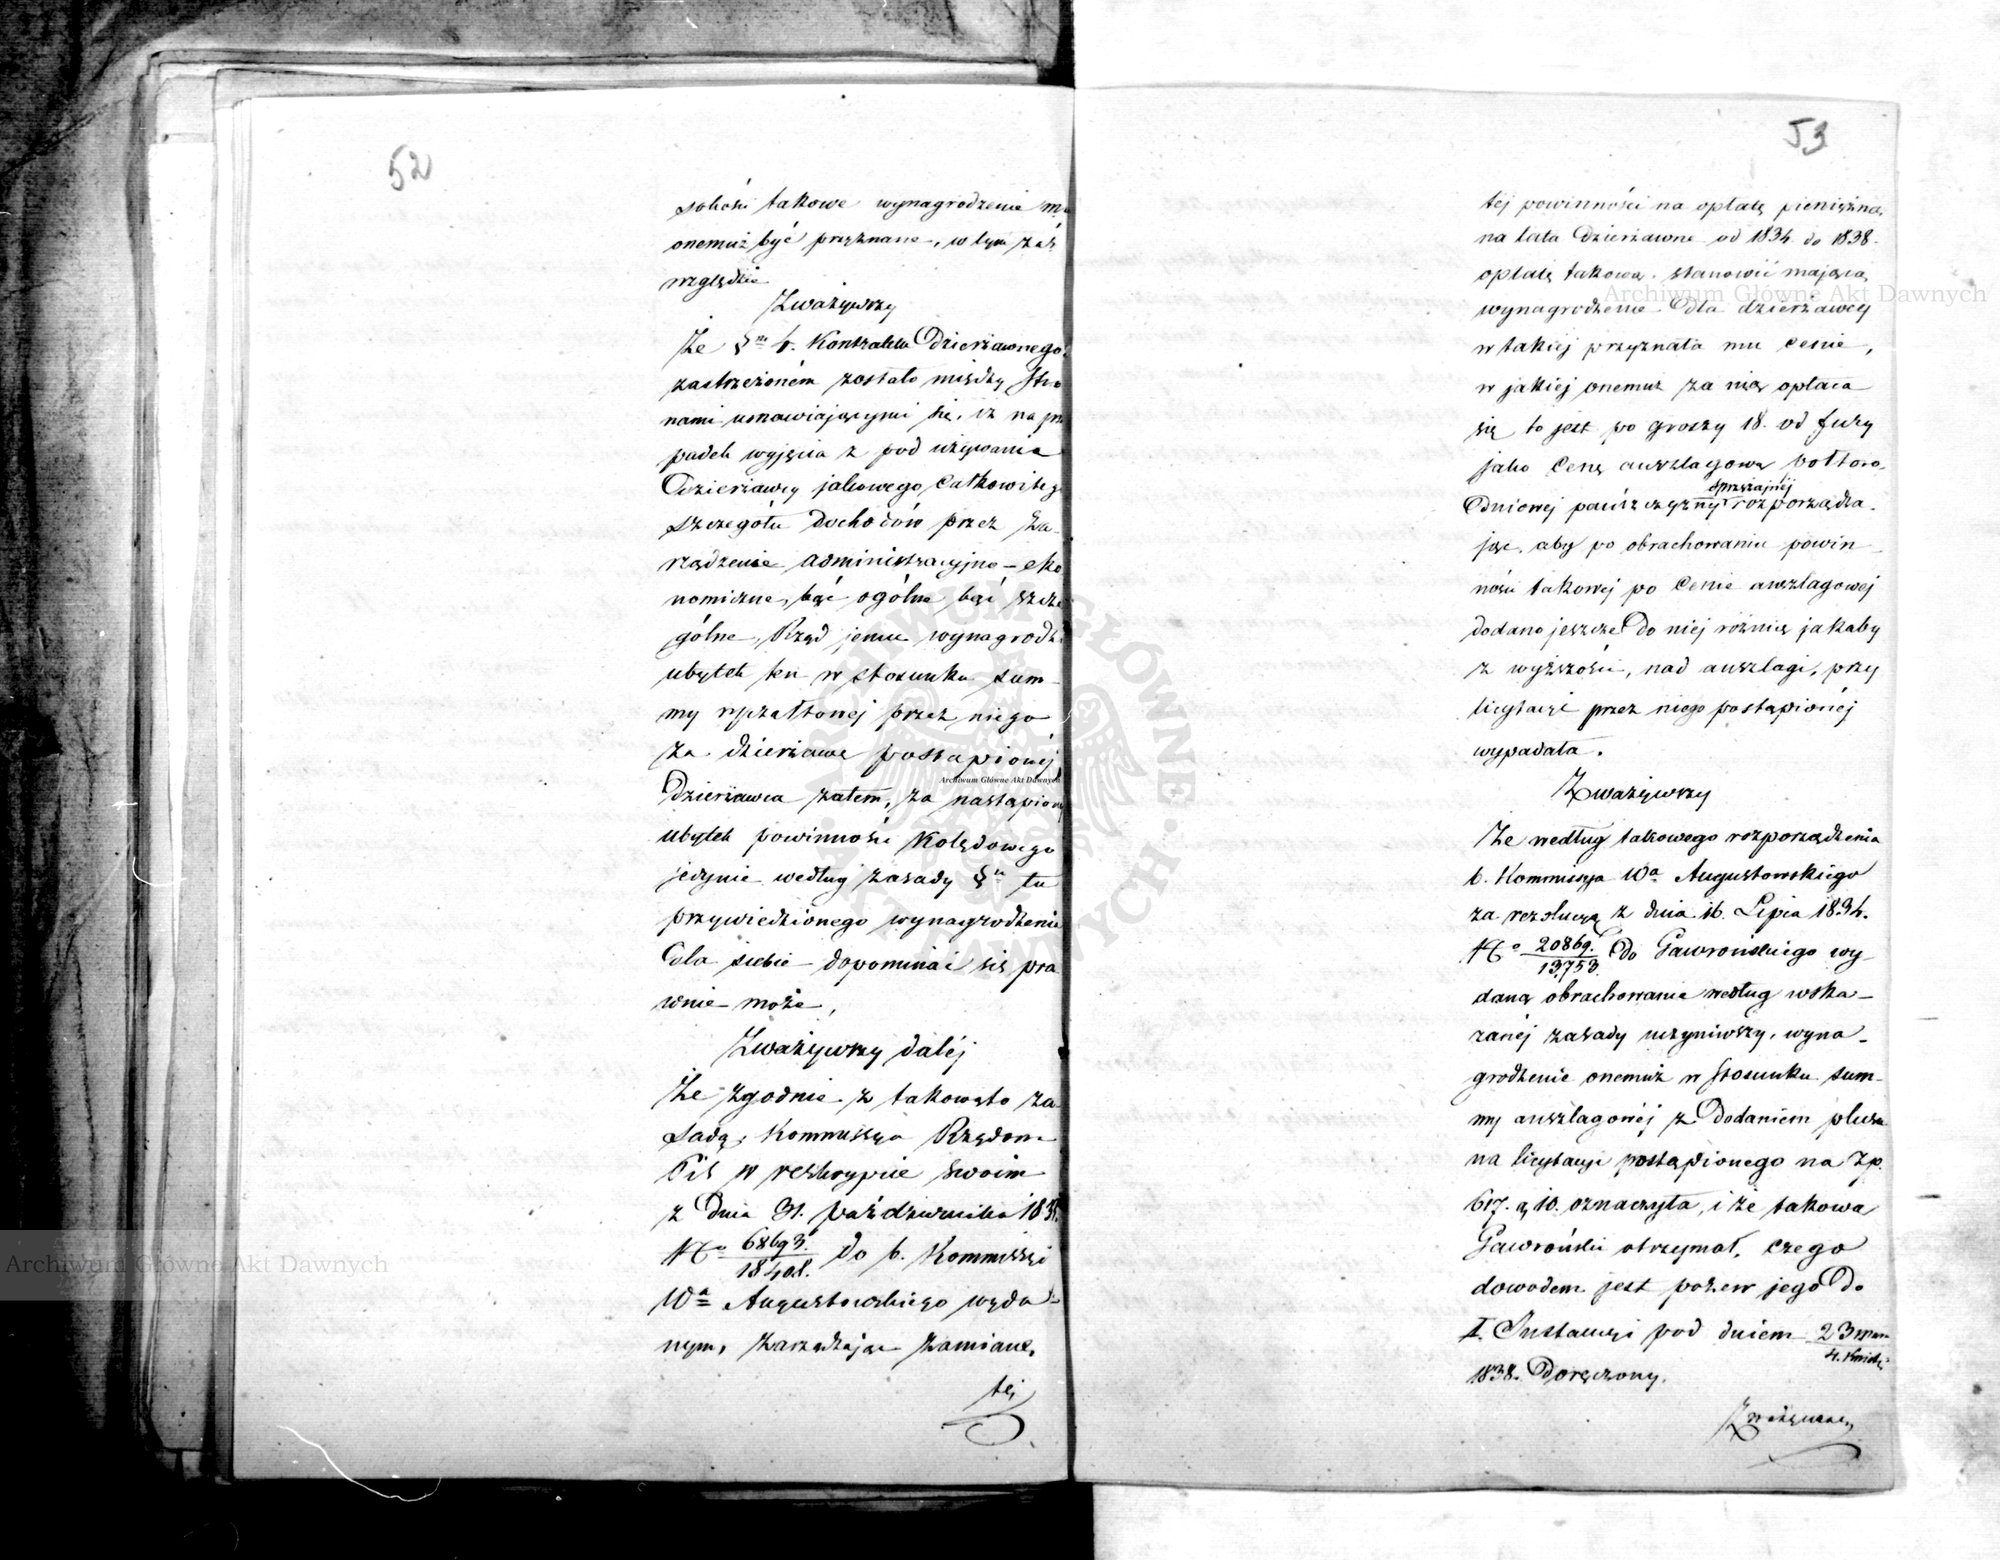 52
sokości takowe wynagrodzenie ma
onemuż być przyznane, w tym zaś
względzie
Zważywszy
Że §m 4. Kontraktu Dzierżawnego
zastrzeżoném zostało między Stro
nami umawiającymi się, iż na przy
padek wyjęcia z pod używania
Dzierżawcy jakowego całkowitego
szczegółu dochodów przez za-
rządzenie administracyjno-eko
nomiczne, bąć ogólne bąć szcze
gólne, Rząd jemu wynagrodzi
ubytek ten w stosunku sum-
my ryczałtowej przez niego
za dzierżawę postąpionej,
Dzierżawca zatem, za nastąpiony
ubytek powinności Kolędowego
jedynie według zasady §u tu
przywiedzionego wynagrodzenia
dla siebie dopominać się pra
wnie może,
Zważywszy daléj
Że zgodnie z takowąto za
sadą, Kommissya Rządowa
w reskrypcie swoim
z Dnia 31. października
No 68693./18408. do b. Kommissyi
Wa Augustowskiego wyda-
nym, zarządzając zamianę,
téj
53
téj powinności na opłatę pieniężną,
na lata Dzierżawne od 1834. do 1838.
opłatę takową, stanowić mającą
wynagrodzenie dla dzierżawcy
w takiej przyznała mu cenie,
w jakiej onemuż za nią opłaca
się to jest po groszy 18. od fury
jako cenę auszlagową półtoro-
sprzężajnéj
Dniowej pańszczyzny rozporządza-
jąc, aby po obrachowaniu powin-
ności takowej po cenie auszlagowej
dodano jeszcze do niej różnicę jakaby
z wyższości, nad auszlagi, przy
licytacyi przez niego postąpionéj
wypadała.
Zważywszy
Że według takowego rozporządzenia
b. Kommissya Wa Augustowskiego
za rezolucyą z dnia 16. Lipca 1834.
No 20869./13753. do Gawrońskiego wy-
daną obrachowanie według wska-
zanéj zasady uczyniwszy, wyna-
grodzenie onemuż w stosunku sum-
my auszlagowéj z Dodaniem plusu
na licytacyi postąpionego na Zp.
617. g 10. oznaczyła, i że takowa
Gawroński otrzymał, czego
dowodem jest pozew jego do
I. Instancyi pod dniem 23 marca/4. Kwiet.
1838. Doręczony.
Zważywszy
Archiwum Główne Akt Dawnych
Archiwum Główne Akt Dawnych
Archiwum Główne Akt Dawnych
ARCHIWUM GŁÓWNE AKT DAWNYCH